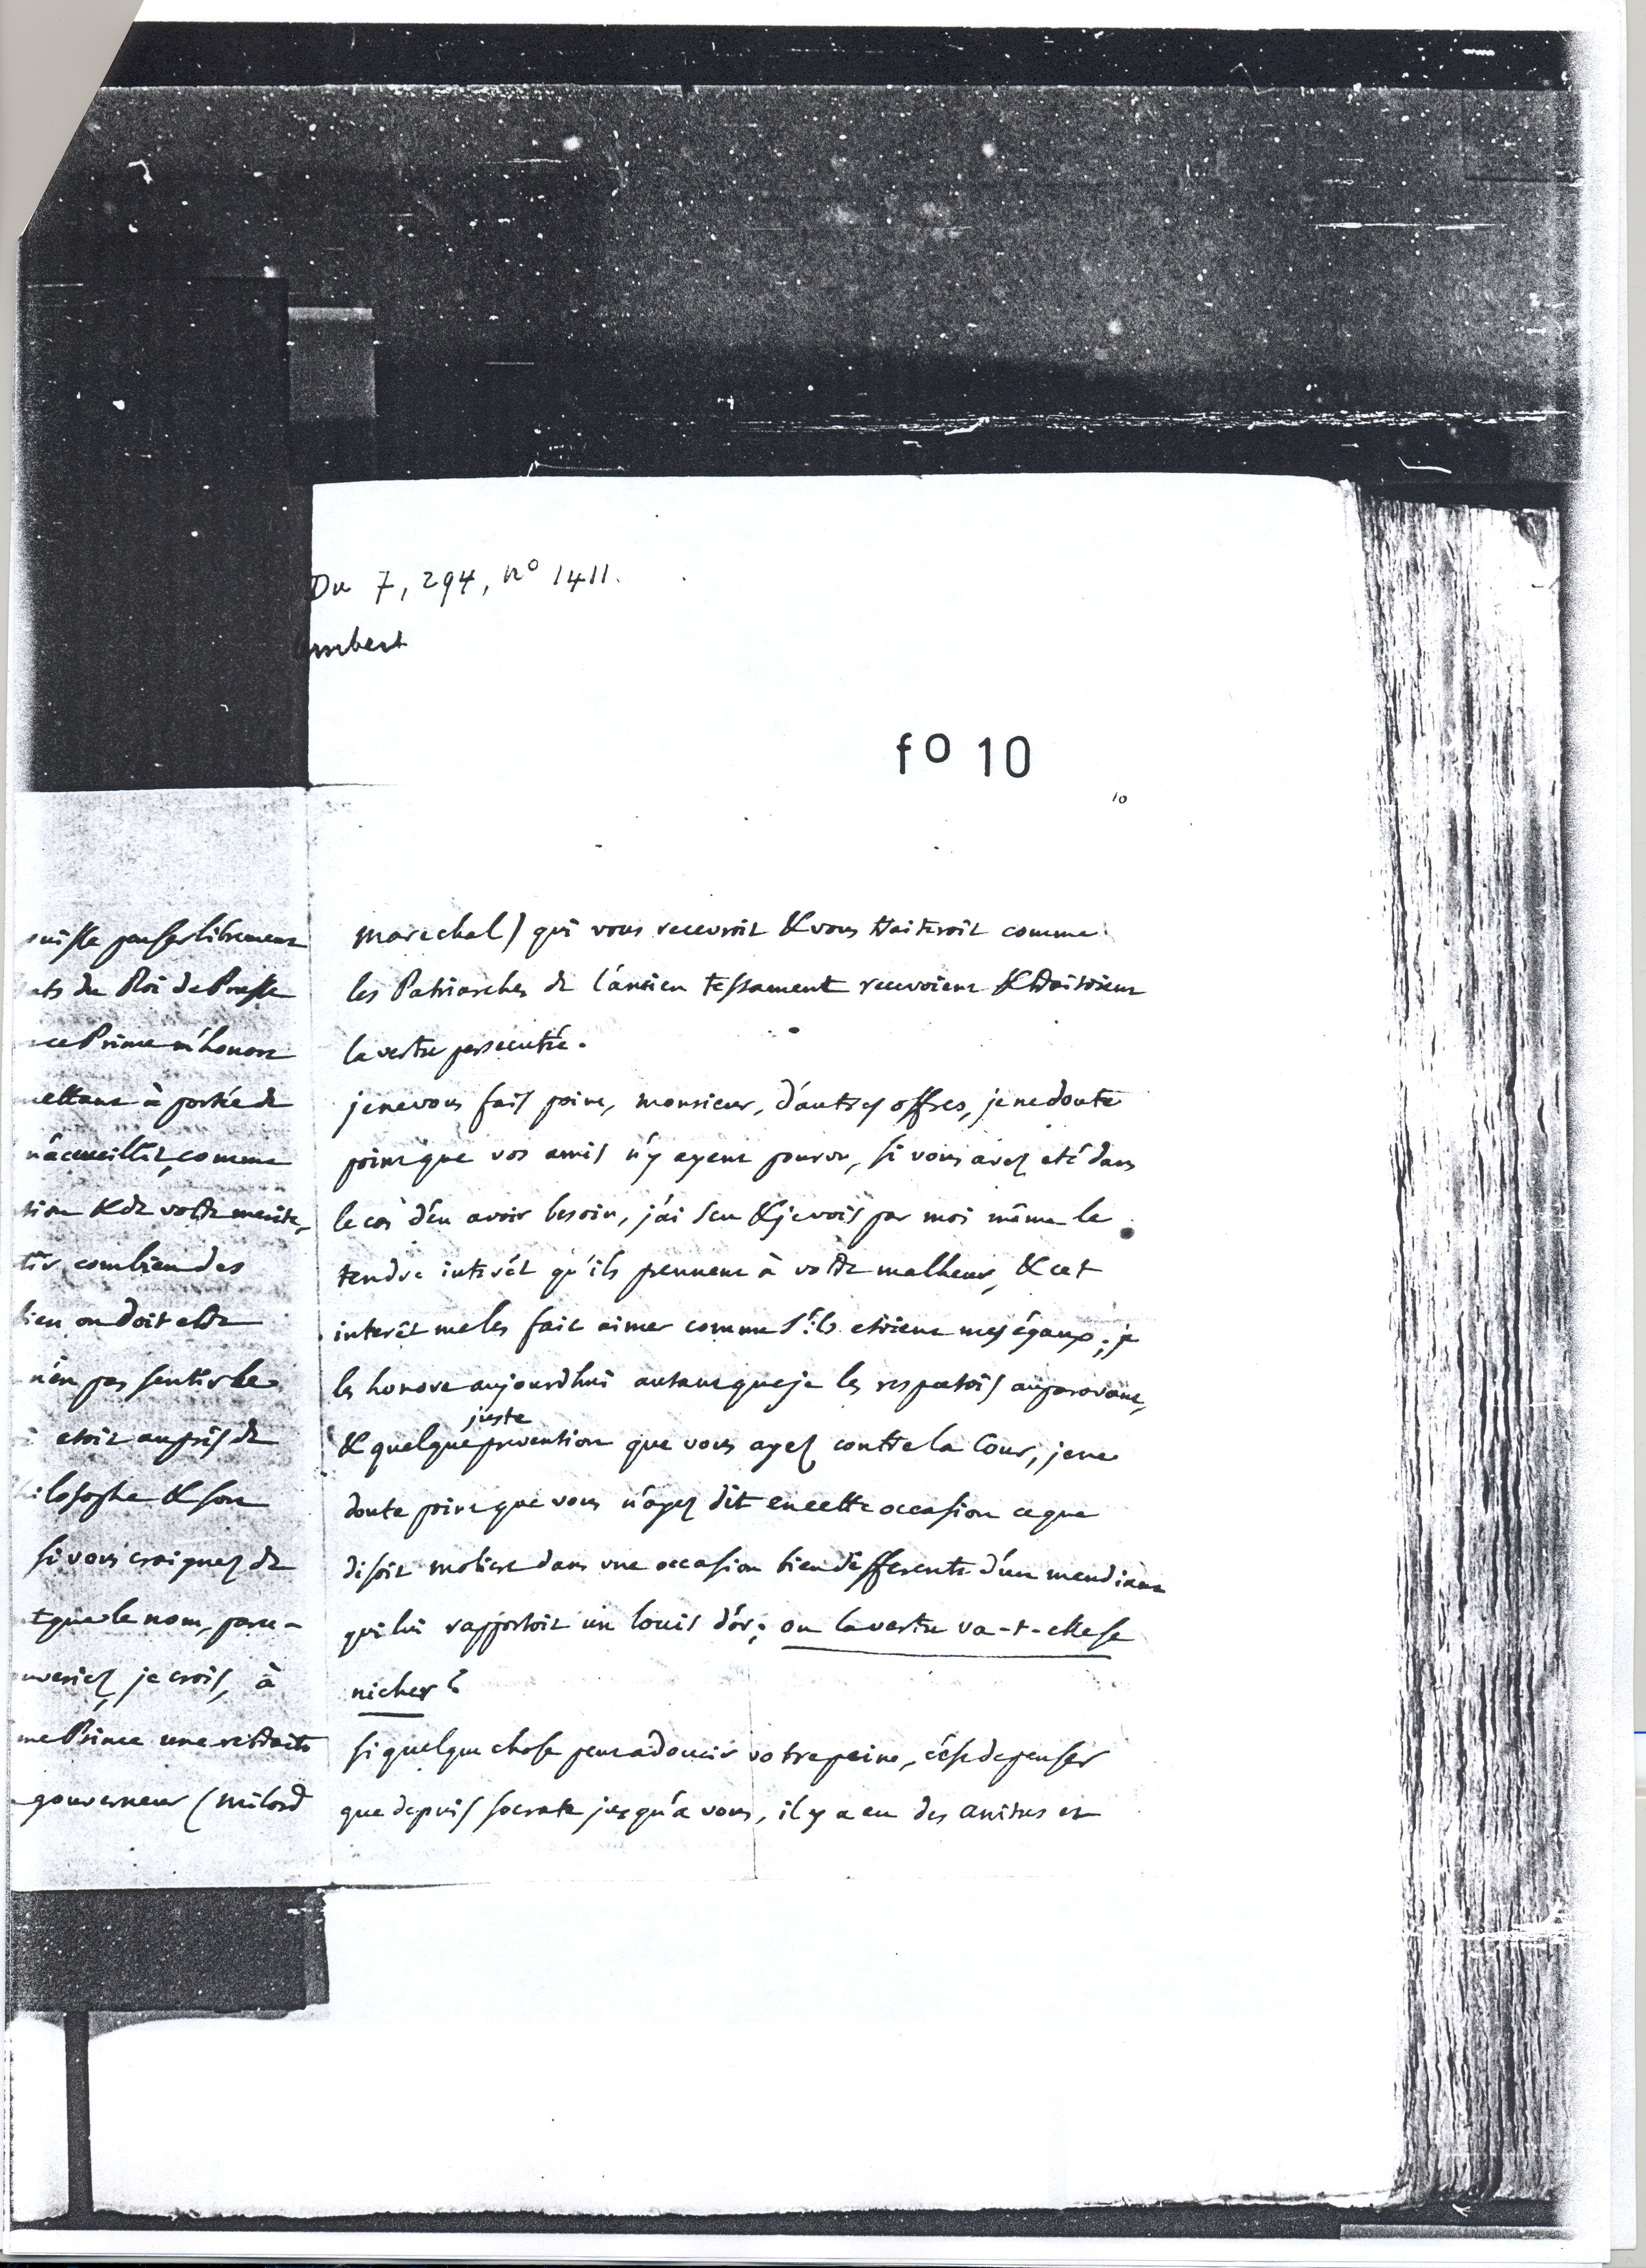 Du 7, 294, nº 1411.
mbert
fº 10
10
puisse penser librement
ats du Roi de Prusse
ce Prince m'honore
mettant à portée de
m'accueillit, comme
tion & de votre merite,
tir combien des
bien on doit etre
n'en pas sentir le
etoit auprès de
hilosophe & son
si vous craignez de
t que le nom, parce-
uveriez, je crois, à
me Prince une retraite
gouverneur (milord
marechal) qui vous recevroit & vous traiteroit comme
les Patriarches de l'ancien testament recevoient & traitoient
la vertu persecutée.
je ne vous fais point, monsieur, d'autres offres, je ne doute
point que vos amis n'y ayent pourvu, si vous avez eté dans
le cas d'en avoir besoin, j'ai scu & je vois par moi même le
tendre interêt qu'ils prennent à votre malheur, & cet
interêt me les fait aimer comme s'ils etoient mes égaux; je
les honore aujourdhui autant que je les respectois auparavant,
juste
& quelque prevention que vous ayez contre la Cour, je ne
doute point que vous n'ayez dit en cette occasion ce que
disoit moliere dans une occasion bien differente d'un mendiant
qui lui rapportoit un louis d'or; ou la vertu va-t-elle se
nicher?
si quelque chose peut adoucir votre peine, c'est de penser
que depuis socrate jusqu'a vous, il y a eu des anitus et